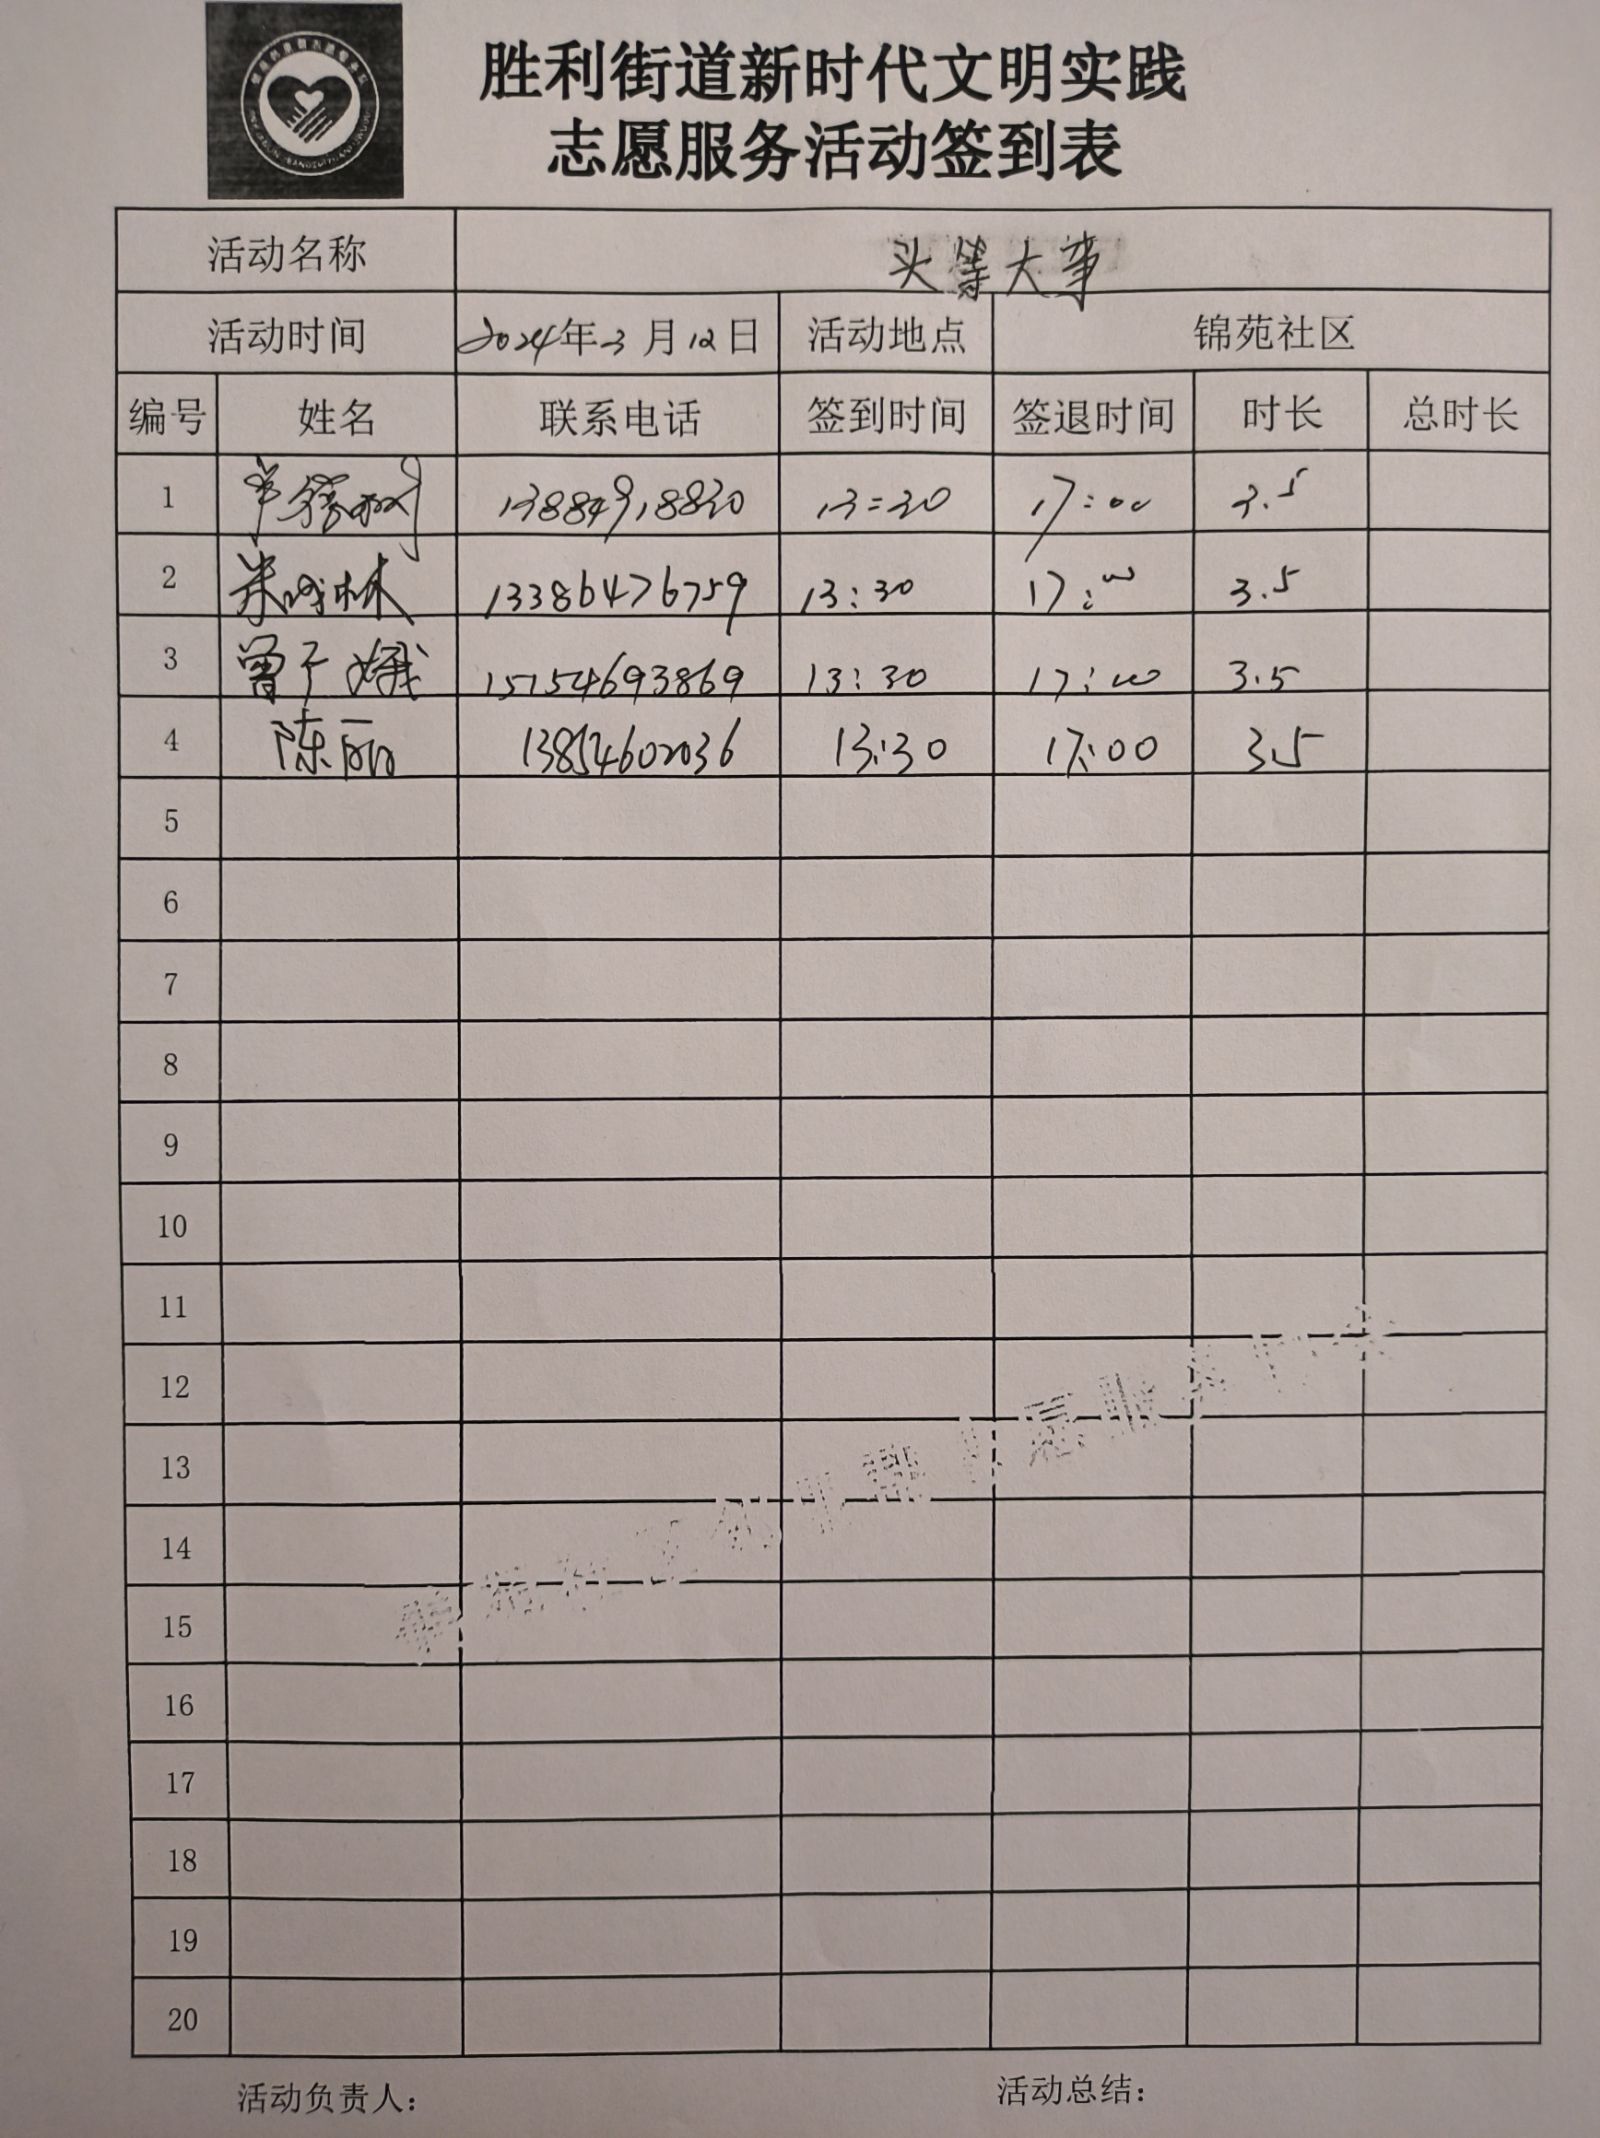 胜利街道新时代文明实践
志愿服务活动签到表
活动名称 头等大事
活动时间 2024年3月12日 活动地点 锦苑社区
编号 姓名 联系电话 签到时间 签退时间 时长 总时长
1 13884918830 13:30 17:00 3.5
2 朱成林 13386476759 13:30 17:00 3.5
3 曾子娥 15154693869 13:30 17:00 3.5
4 陈丽 13854602036 13:30 17:00 3.5
5
6
7
8
9
10
11
12
13
14
15
16
17
18
19
20
活动负责人： 活动总结：